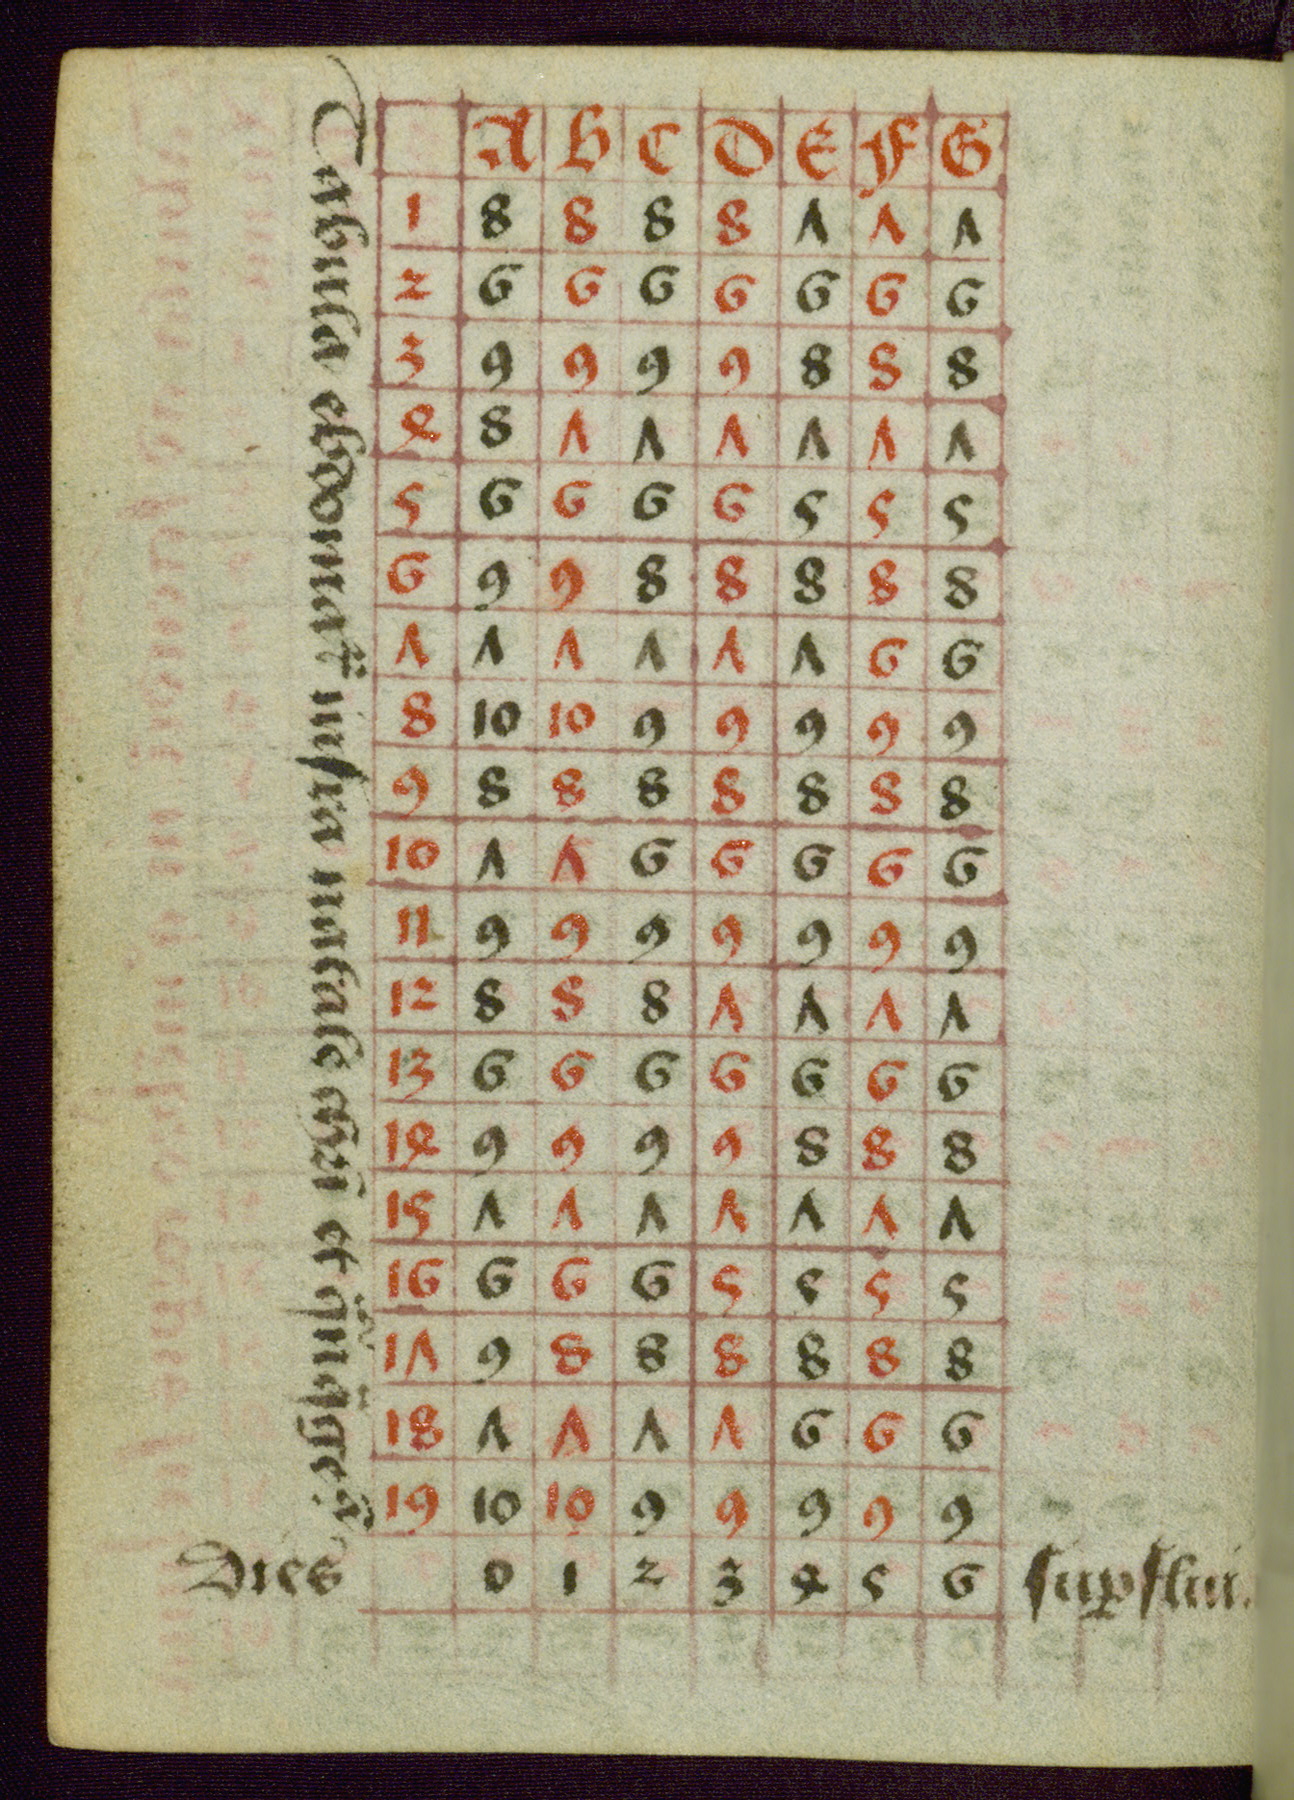 Tabula infra natale et
A B C D E F G
1 8 8 8 8 7 7 7
2 6 6 6 6 6 6 6
3 9 9 9 9 8 8 8
4 8 7 7 7 7 7 7
5 6 6 6 6 5 5 5
6 9 9 8 8 8 8 8
7 7 7 7 7 7 6 6
8 10 10 9 9 9 9 9
9 8 8 8 8 8 8 8
10 7 7 6 6 6 6 6
11 9 9 9 9 9 9 9
12 8 8 8 7 7 7 7
13 6 6 6 6 6 6 6
14 9 9 9 9 8 8 8
15 7 7 7 7 7 7 7
16 6 6 6 5 5 5 5
17 9 8 8 8 8 8 8
18 7 7 7 7 6 6 6
19 10 10 9 9 9 9 9
Dies 0 1 2 3 4 5 6 suꝑflui.